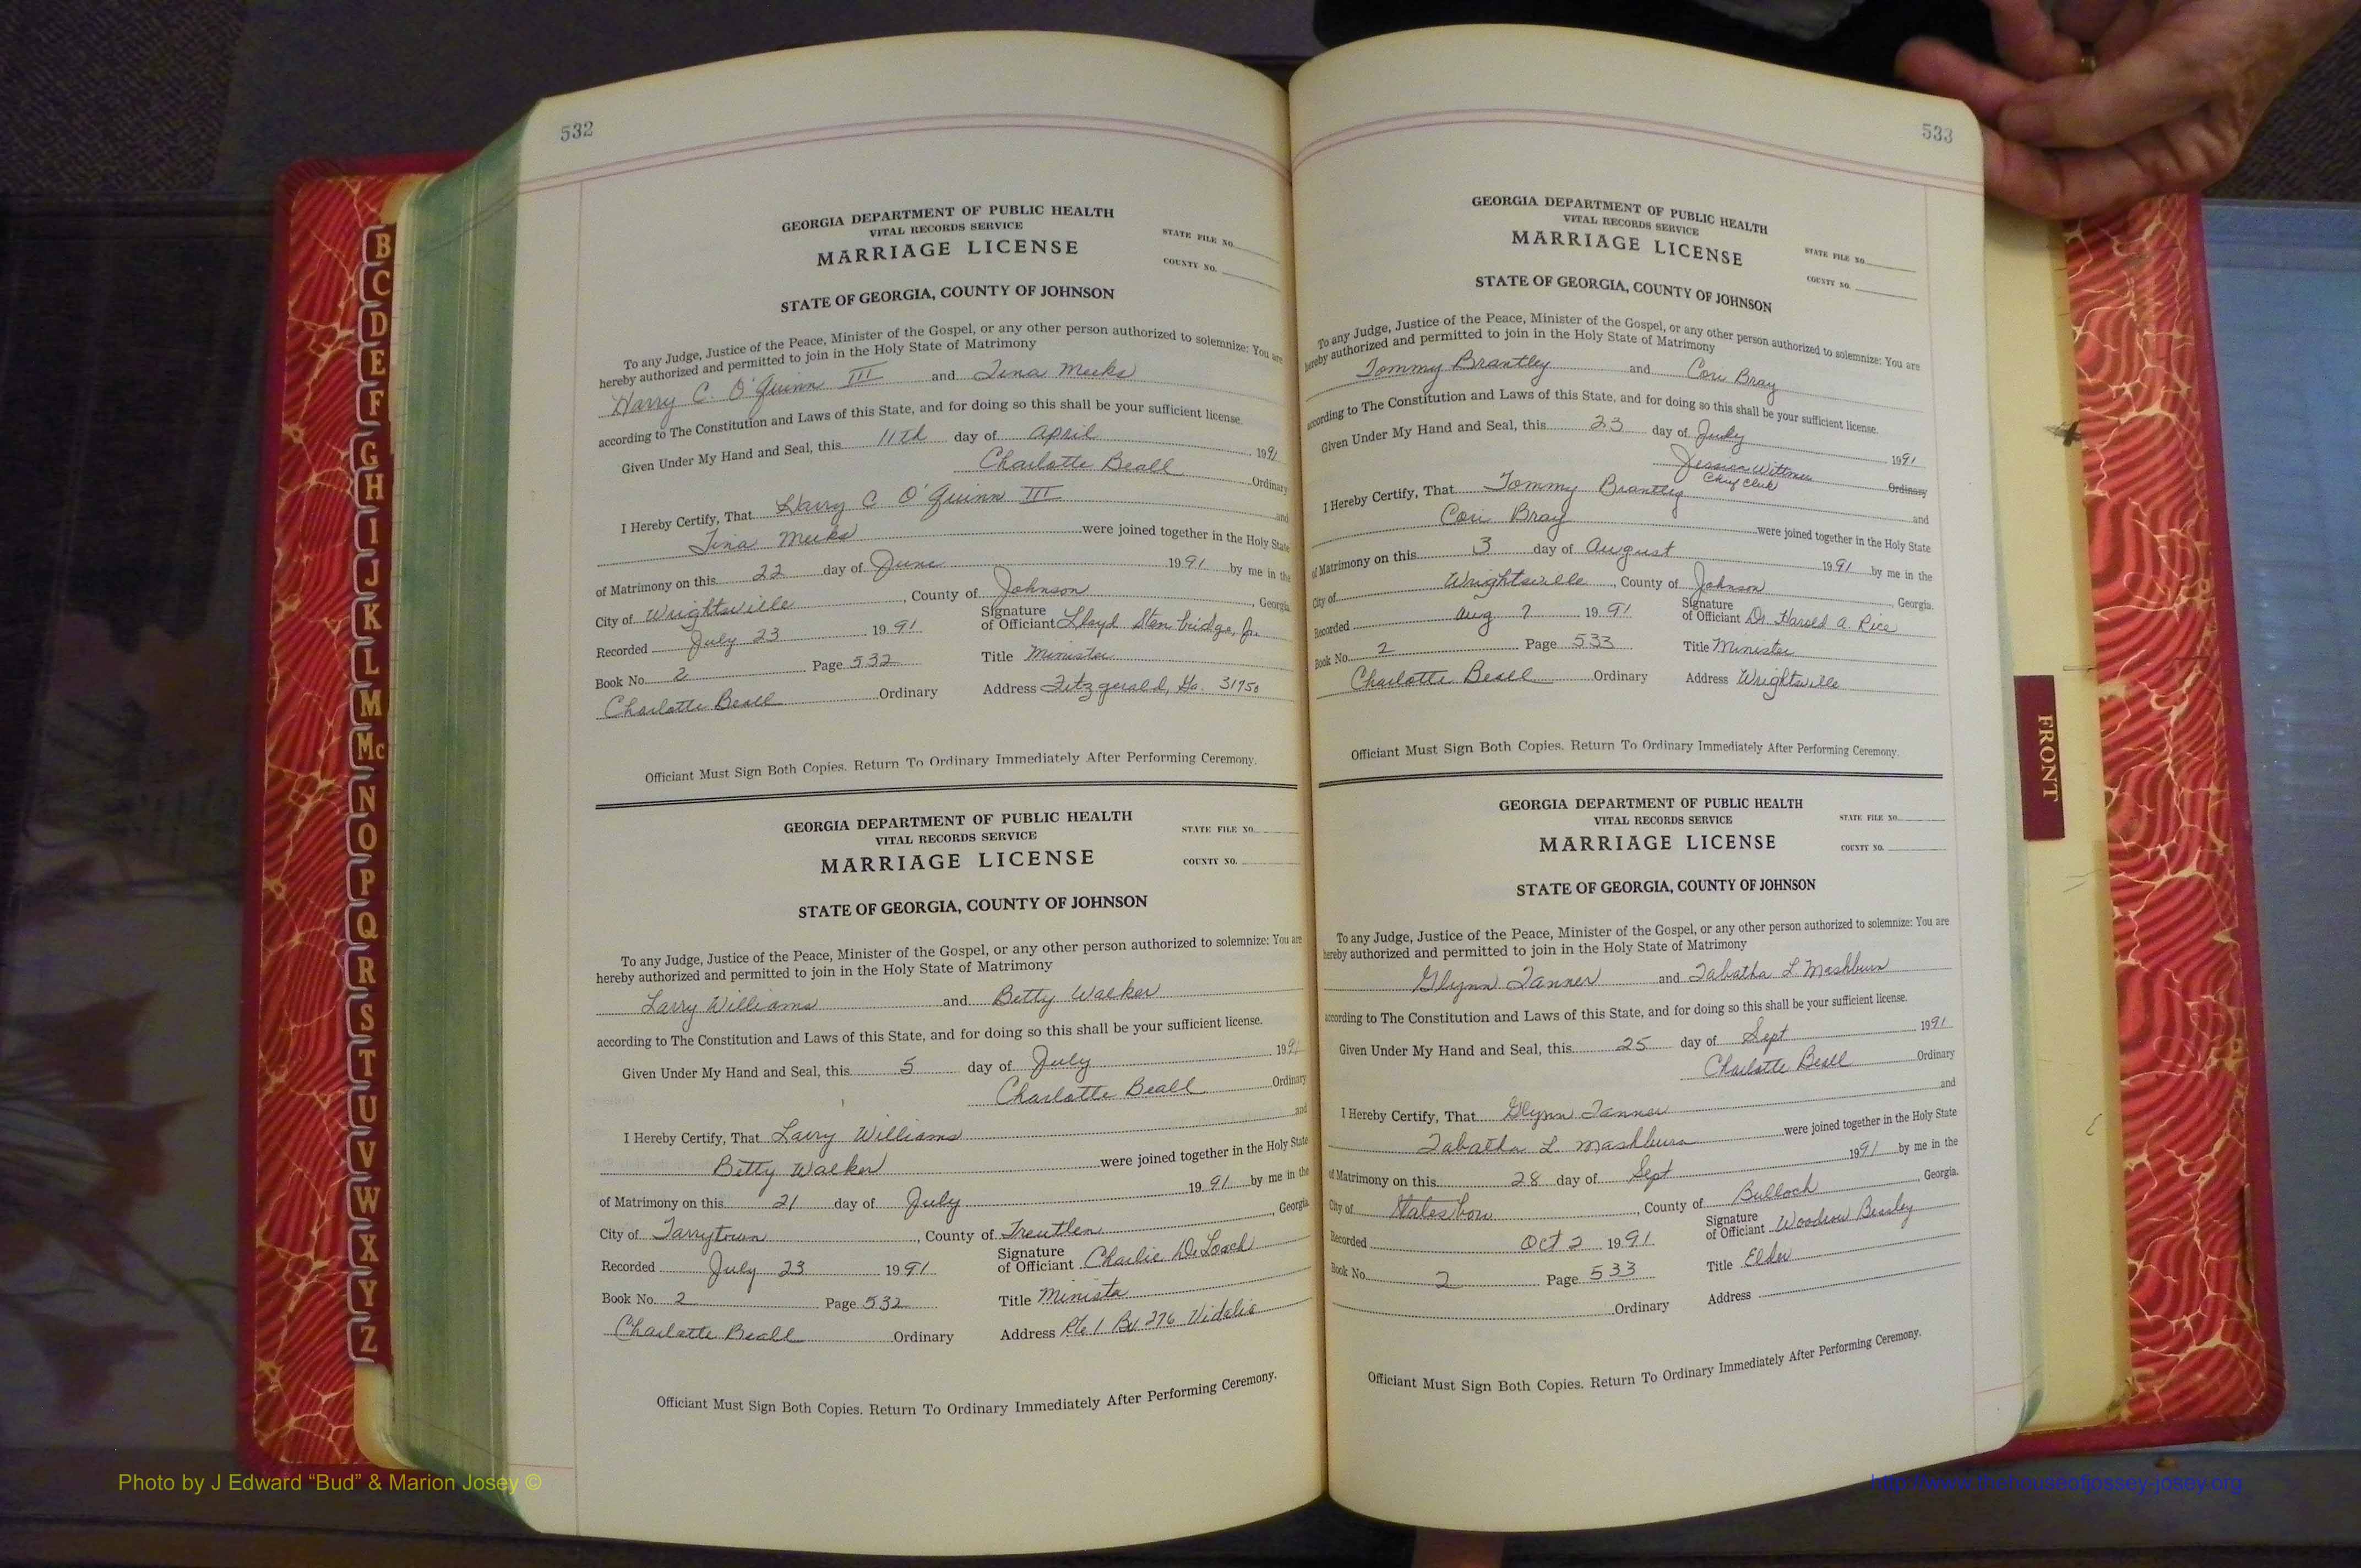 B
C
D
E
F
G
H
I
J
K
L
M
Mc
N
O
P
Q
R
S
T
U
V
W
X
Y
Z
532
GEORGIA DEPARTMENT OF PUBLIC HEALTH
VITAL RECORDS SERVICE
MARRIAGE LICENSE
STATE FILE NO.
COUNTY NO.
STATE OF GEORGIA, COUNTY OF JOHNSON
To any Judge, Justice of the Peace, Minister of the Gospel, or any other person authorized to solemnize: You are
hereby authorized and permitted to join in the Holy State of Matrimony
Harry C. O'Quinn III and Tina Meeks
according to The Constitution and Laws of this State, and for doing so this shall be your sufficient license.
Given Under My Hand and Seal, this 11th day of April 1991
Charlotte Beall Ordinary
I Hereby Certify, That Harry C O'Quinn III and
Tina Meeks were joined together in the Holy State
of Matrimony on this 22 day of June 1991 by me in the
City of Wrightsville, County of Johnson, Georgia.
Recorded July 23 1991 Signature of Officiant Lloyd Stembridge, Jr.
Book No. 2 Page 532 Title Minister
Charlotte Beall Ordinary Address Fitzgerald, Ga. 31750
Officiant Must Sign Both Copies. Return To Ordinary Immediately After Performing Ceremony.
GEORGIA DEPARTMENT OF PUBLIC HEALTH
VITAL RECORDS SERVICE
MARRIAGE LICENSE
STATE FILE NO.
COUNTY NO.
STATE OF GEORGIA, COUNTY OF JOHNSON
To any Judge, Justice of the Peace, Minister of the Gospel, or any other person authorized to solemnize: You are
hereby authorized and permitted to join in the Holy State of Matrimony
Larry Williams and Betty Walker
according to The Constitution and Laws of this State, and for doing so this shall be your sufficient license.
Given Under My Hand and Seal, this 5 day of July 1991
Charlotte Beall Ordinary
I Hereby Certify, That Larry Williams and
Betty Walker were joined together in the Holy State
of Matrimony on this 21 day of July 1991 by me in the
City of Tarrytown, County of Treutlen, Georgia
Recorded July 23 1991 Signature of Officiant Charlie DeLoach
Book No. 2 Page 532 Title Minister
Charlotte Beall Ordinary Address Rte 1 Bx 276 Vidalia
Officiant Must Sign Both Copies. Return To Ordinary Immediately After Performing Ceremony.
533
GEORGIA DEPARTMENT OF PUBLIC HEALTH
VITAL RECORDS SERVICE
MARRIAGE LICENSE
STATE FILE NO.
COUNTY NO.
STATE OF GEORGIA, COUNTY OF JOHNSON
To any Judge, Justice of the Peace, Minister of the Gospel, or any other person authorized to solemnize: You are
hereby authorized and permitted to join in the Holy State of Matrimony
Tommy Brantley and Cori Bray
according to The Constitution and Laws of this State, and for doing so this shall be your sufficient license.
Given Under My Hand and Seal, this 23 day of July 1991
Jessica Wittmer Ordinary
Chief Clerk
I Hereby Certify, That Tommy Brantley and
Cori Bray were joined together in the Holy State
of Matrimony on this 3 day of August 1991 by me in the
City of Wrightsville, County of Johnson, Georgia.
Recorded Aug 7 1991 Signature of Officiant Dr. Harold A. Rice
Book No. 2 Page 533 Title Minister
Charlotte Beall Ordinary Address Wrightsville
Officiant Must Sign Both Copies. Return To Ordinary Immediately After Performing Ceremony.
GEORGIA DEPARTMENT OF PUBLIC HEALTH
VITAL RECORDS SERVICE
MARRIAGE LICENSE
STATE FILE NO.
COUNTY NO.
STATE OF GEORGIA, COUNTY OF JOHNSON
To any Judge, Justice of the Peace, Minister of the Gospel, or any other person authorized to solemnize: You are
hereby authorized and permitted to join in the Holy State of Matrimony
Glynn Tanner and Tabatha L. Mashburn
according to The Constitution and Laws of this State, and for doing so this shall be your sufficient license.
Given Under My Hand and Seal, this 25 day of Sept 1991
Charlotte Beall Ordinary
I Hereby Certify, That Glynn Tanner and
Tabatha L. Mashburn were joined together in the Holy State
of Matrimony on this 28 day of Sept 1991 by me in the
City of Statesboro, County of Bulloch, Georgia.
Recorded Oct 2 1991 Signature of Officiant Woodrow Beasley
Book No. 2 Page 533 Title Elder
Ordinary Address
Officiant Must Sign Both Copies. Return To Ordinary Immediately After Performing Ceremony.
FRONT
Photo by J Edward “Bud” & Marion Josey ©
http://www.thehouseofjossey-josey.org